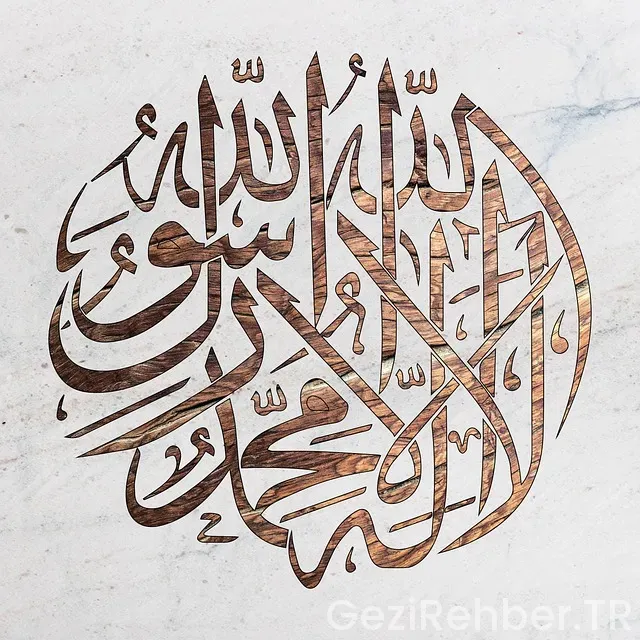 لا إله إلا الله محمد رسول الله
GeziRehber.TR